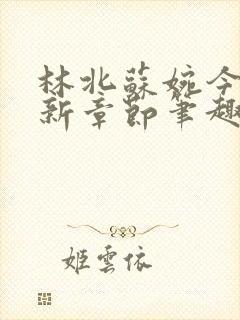 林北蘇婉今
新章節筆趣
姬雲依